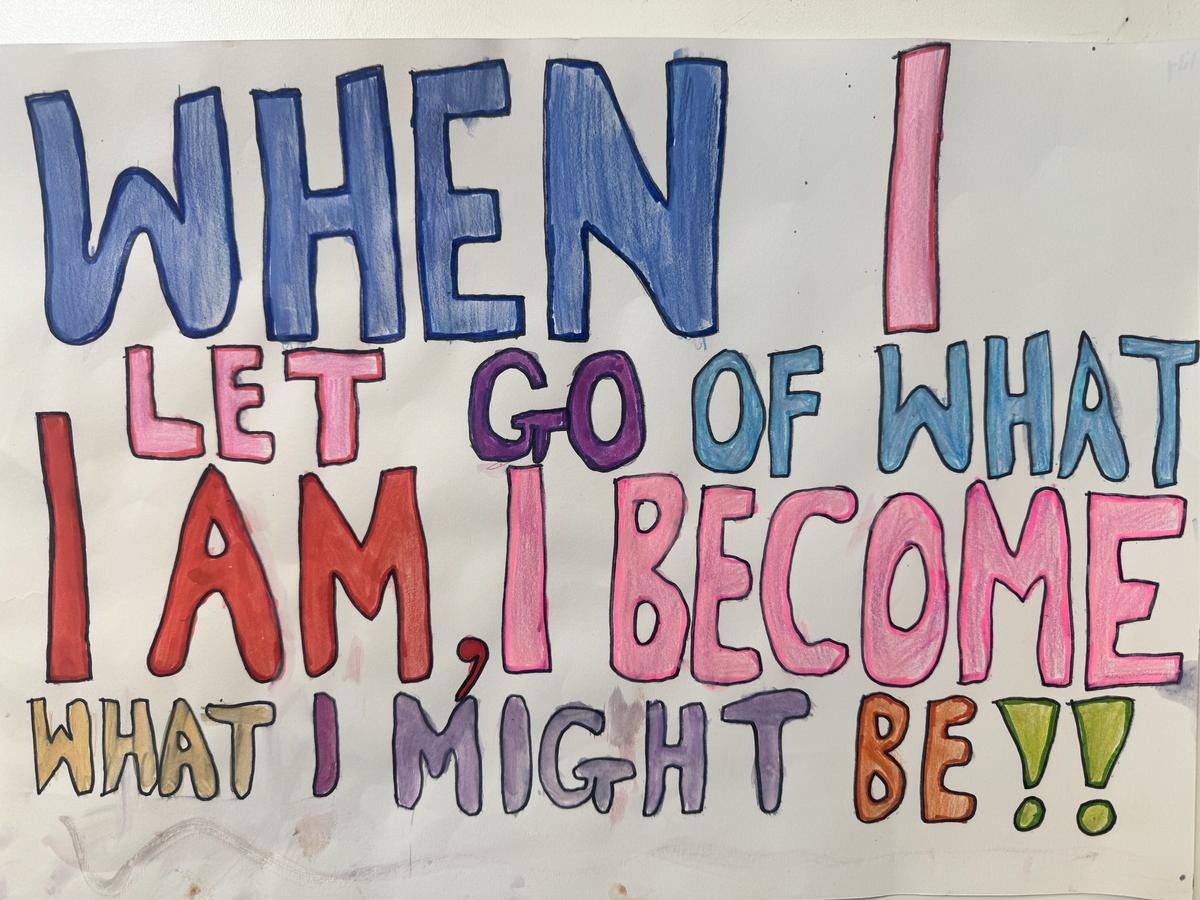 WHEN I
LET GO OF WHAT
I AM, I BECOME
WHAT I MIGHT BE!!